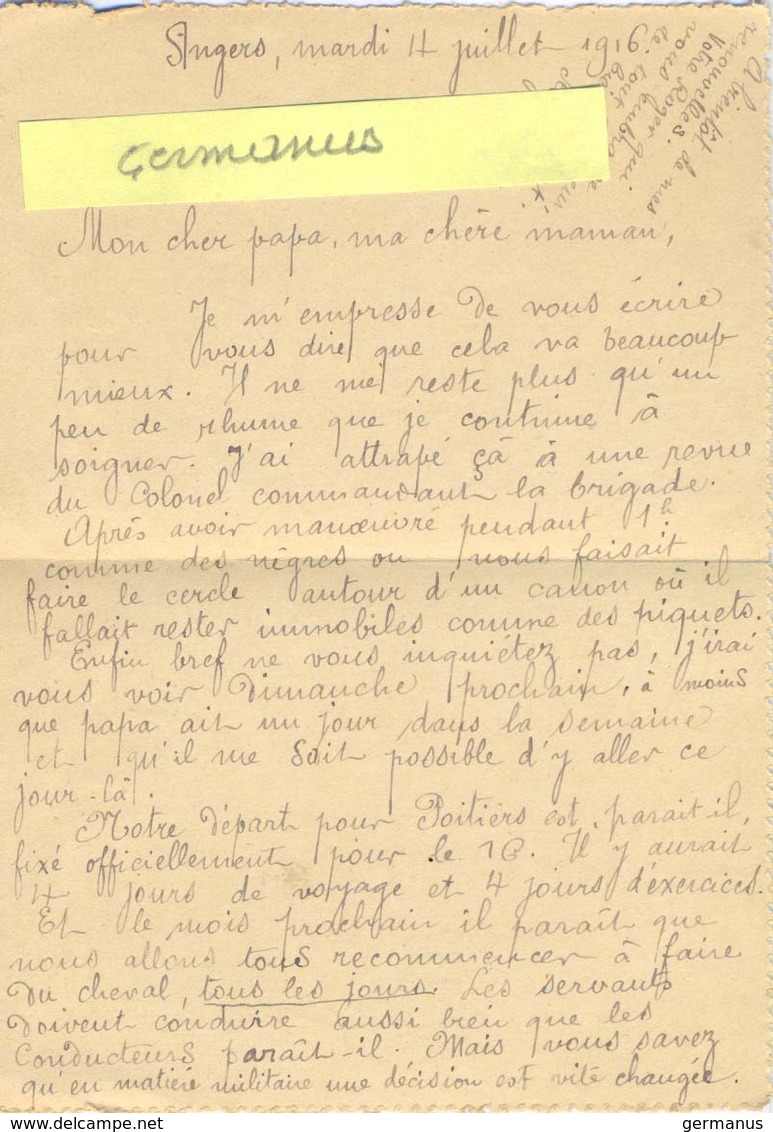 Angers, mardi 4 juillet 1916.
Germanus
Mon cher papa, ma chère maman,
Je m'empresse de vous écrire
pour vous dire que cela va beaucoup
mieux. Il ne me reste plus qu'un
peu de rhume que je continue à
soigner. J'ai attrapé çà à une revue
du Colonel commandant la brigade.
Après avoir manœuvré pendant 1h
comme des nègres on nous faisait
faire le cercle autour d'un canon où il
fallait rester immobiles comme des piquets.
Enfin bref ne vous inquiétez pas, j'irai
vous voir Dimanche prochain, à moins
que papa ait un jour dans la semaine
et qu'il me soit possible d'y aller ce
jour-là.
Notre départ pour Poitiers est, parait-il,
fixé officiellement pour le 16. Il y aurait
4 jours de voyage et 4 jours d'éxercices.
Et le mois prochain il paraît que
nous allons tous recommencer à faire
du cheval, tous les jours. Les servants
doivent conduire aussi bien que les
conducteurs paraît-il. Mais vous savez
qu'en matière militaire une décision est vite changée.
A bientôt de mes
nouvelles.
Votre Roger qui
vous embrasse
de tout
germanus